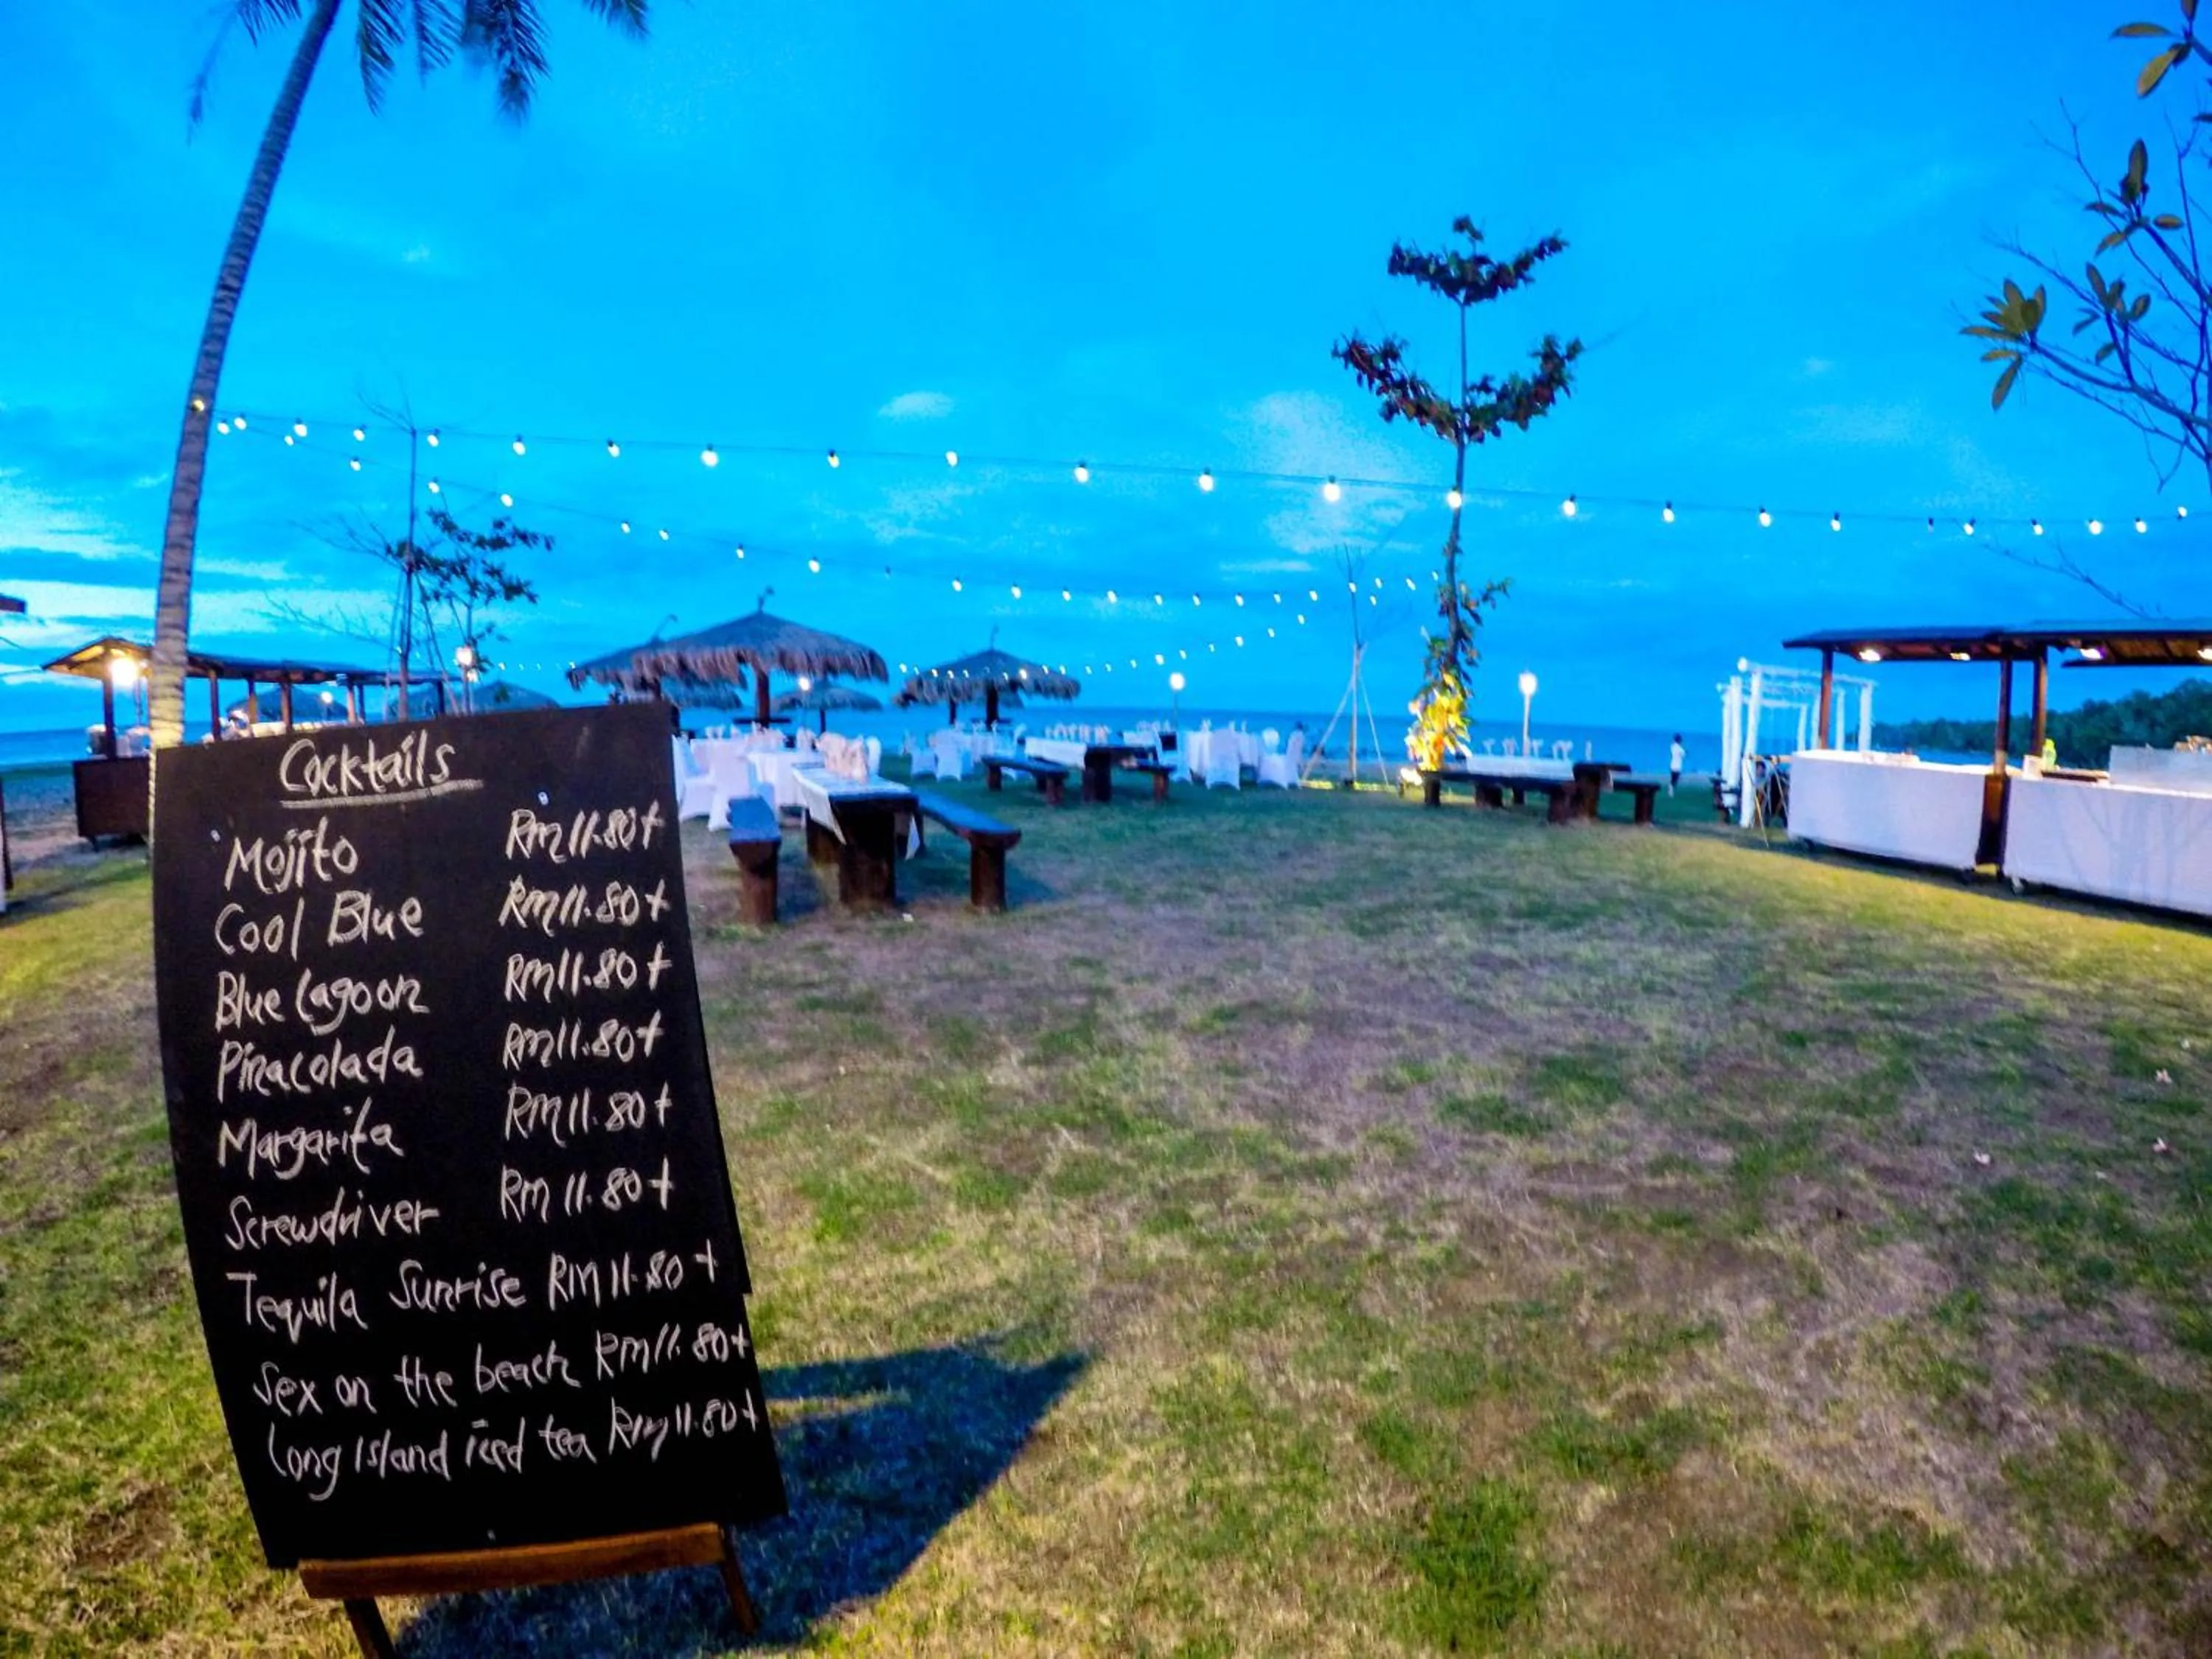 Cocktails
Mojito RM11.80+
Cool Blue RM11.80+
Blue Lagoon RM11.80+
Pinacolada RM11.80+
Margarita RM11.80+
Screwdriver RM11.80+
Tequila Sunrise RM11.80+
Sex on the beach RM11.80+
Long Island iced tea RM11.80+